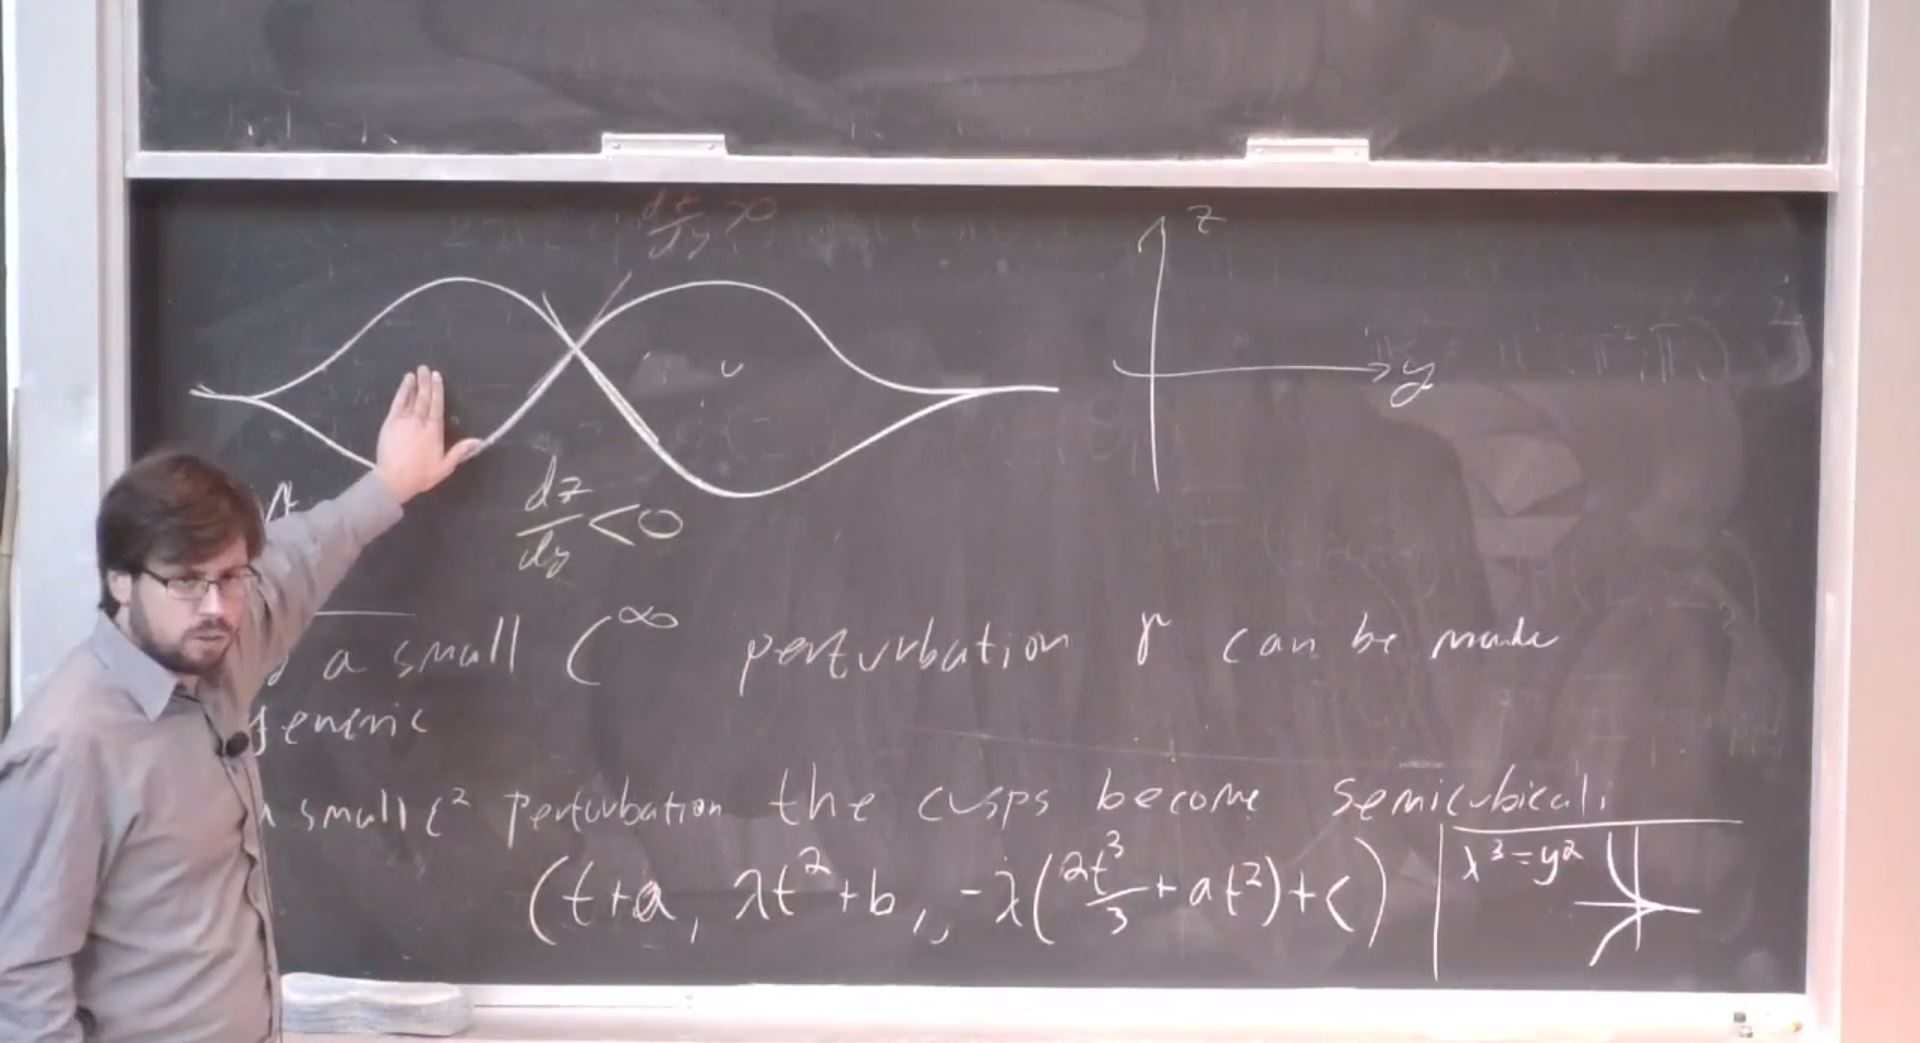 dz/dy > 0
z
y
dz/dy < 0
a small C^∞ perturbation γ can be made
generic
small C² perturbation the cusps become semicubical:
(t+a, λt²+b, -λ(2t³/3 + at²)+c)
x³=y²